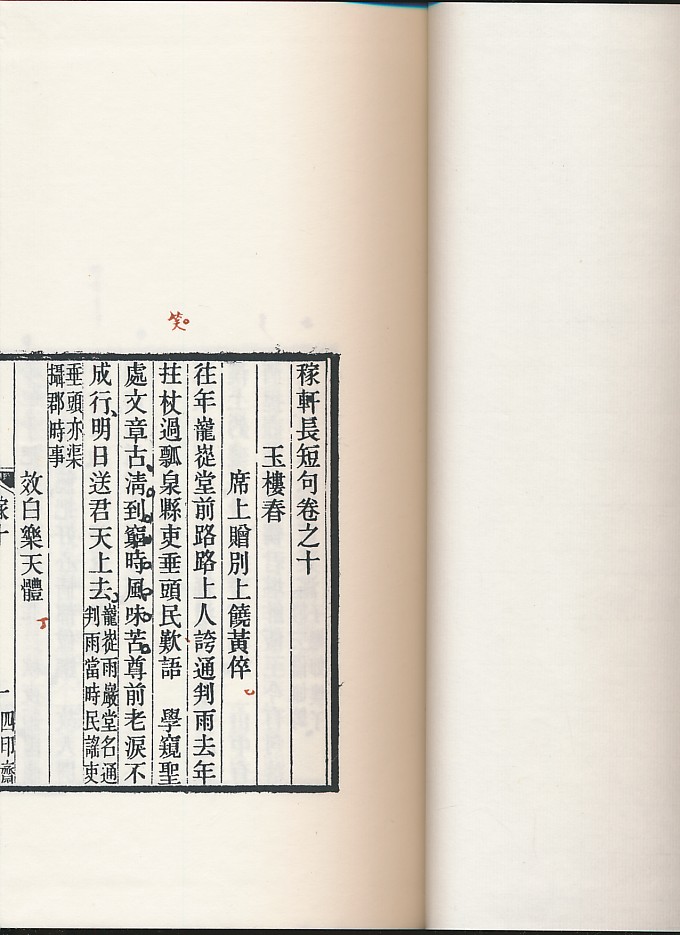 笑
稼軒長短句卷之十
玉樓春
席上贈別上饒黃倅
往年巃嵸堂前路路上人誇通判雨去年
拄杖過瓢泉縣吏垂頭民歎語　學窺聖
處文章古淸到窮時風味苦尊前老淚不
成行明日送君天上去巃嵸雨巖堂名通
判雨當時民謠吏
垂頭亦渠
攝郡時事
效白樂天體
稼十
一
四印齋